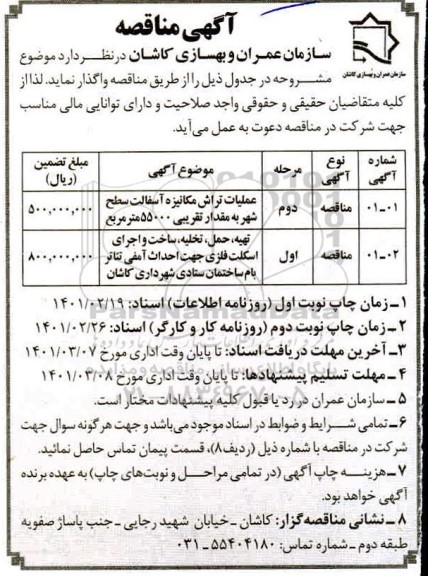 آگهی مناقصه
سازمان عمران و بهسازی کاشان
سازمان عمران و بهسازی کاشان در نظر دارد موضوع
مشروحه در جدول ذیل را از طریق مناقصه واگذار نماید. لذا از
کلیه متقاضیان حقیقی و حقوقی واجد صلاحیت و دارای توانایی مالی مناسب
جهت شرکت در مناقصه دعوت به عمل می‌آید.
شماره آگهی | نوع آگهی | مرحله | موضوع آگهی | مبلغ تضمین (ریال)
۰۱-۰۱ | مناقصه | دوم | عملیات تراش مکانیزه آسفالت سطح شهر به مقدار تقریبی ۵۵۰۰۰ متر مربع | ۵۰۰,۰۰۰,۰۰۰
۰۱-۰۲ | مناقصه | اول | تهیه، حمل، تخلیه، ساخت و اجرای اسکلت فلزی جهت احداث آمفی تئاتر بام ساختمان ستادی شهرداری کاشان | ۸۰۰,۰۰۰,۰۰۰
۱ـ زمان چاپ نوبت اول (روزنامه اطلاعات) اسناد: ۱۴۰۱/۰۲/۱۹
۲ـ زمان چاپ نوبت دوم (روزنامه کار و کارگر) اسناد: ۱۴۰۱/۰۲/۲۶
۳ـ آخرین مهلت دریافت اسناد: تا پایان وقت اداری مورخ ۱۴۰۱/۰۳/۰۷
۴ـ مهلت تسلیم پیشنهادها: تا پایان وقت اداری مورخ ۱۴۰۱/۰۳/۰۸
۵ـ سازمان عمران در رد یا قبول کلیه پیشنهادات مختار است.
۶ـ تمامی شرایط و ضوابط در اسناد موجود می‌باشد و جهت هرگونه سوال جهت
شرکت در مناقصه با شماره ذیل (ردیف۸)، قسمت پیمان تماس حاصل نمائید.
۷ـ هزینه چاپ آگهی (در تمامی مراحل و نوبت‌های چاپ) به عهده برنده
آگهی خواهد بود.
۸ـ نشانی مناقصه‌گزار: کاشان ـ خیابان شهید رجایی ـ جنب پاساژ صفویه
طبقه دوم ـ شماره تماس: ۵۵۴۰۴۱۸۰-۰۳۱
ParsNamadData